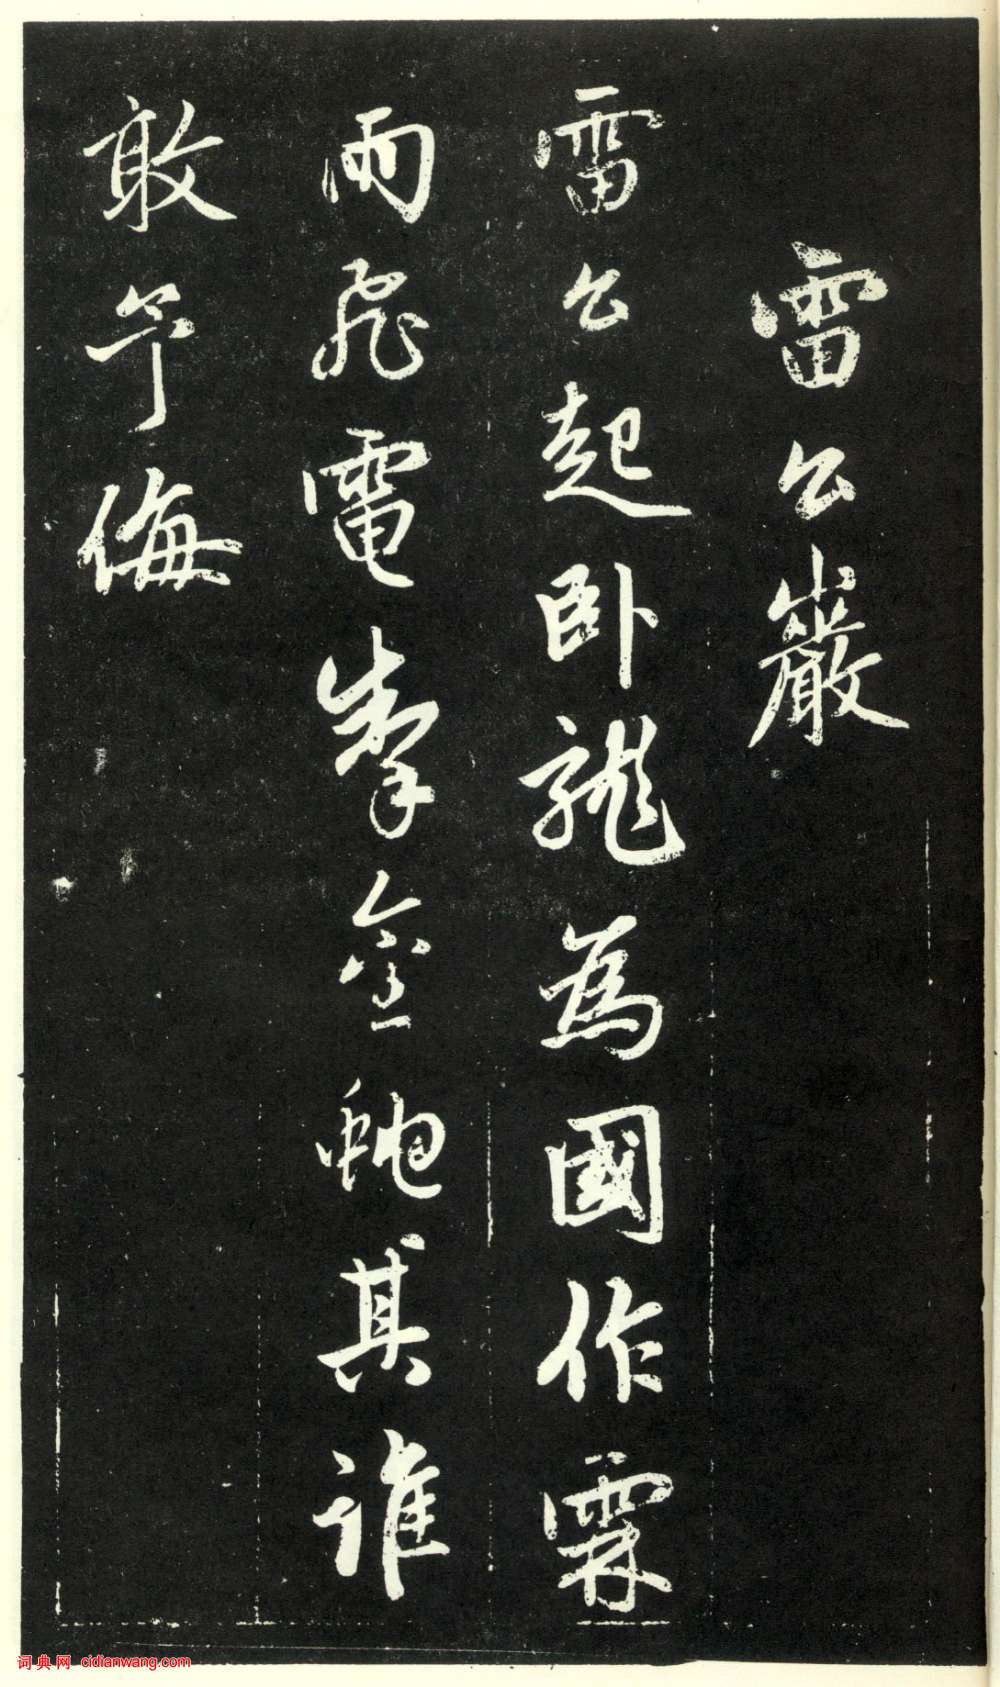 雷公巖
雷公起卧龍為國作霖
雨飛電掣金虵其誰
敢予侮
词典网 cidianwang.com